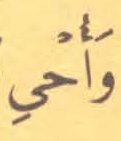 وَأُحْيِ